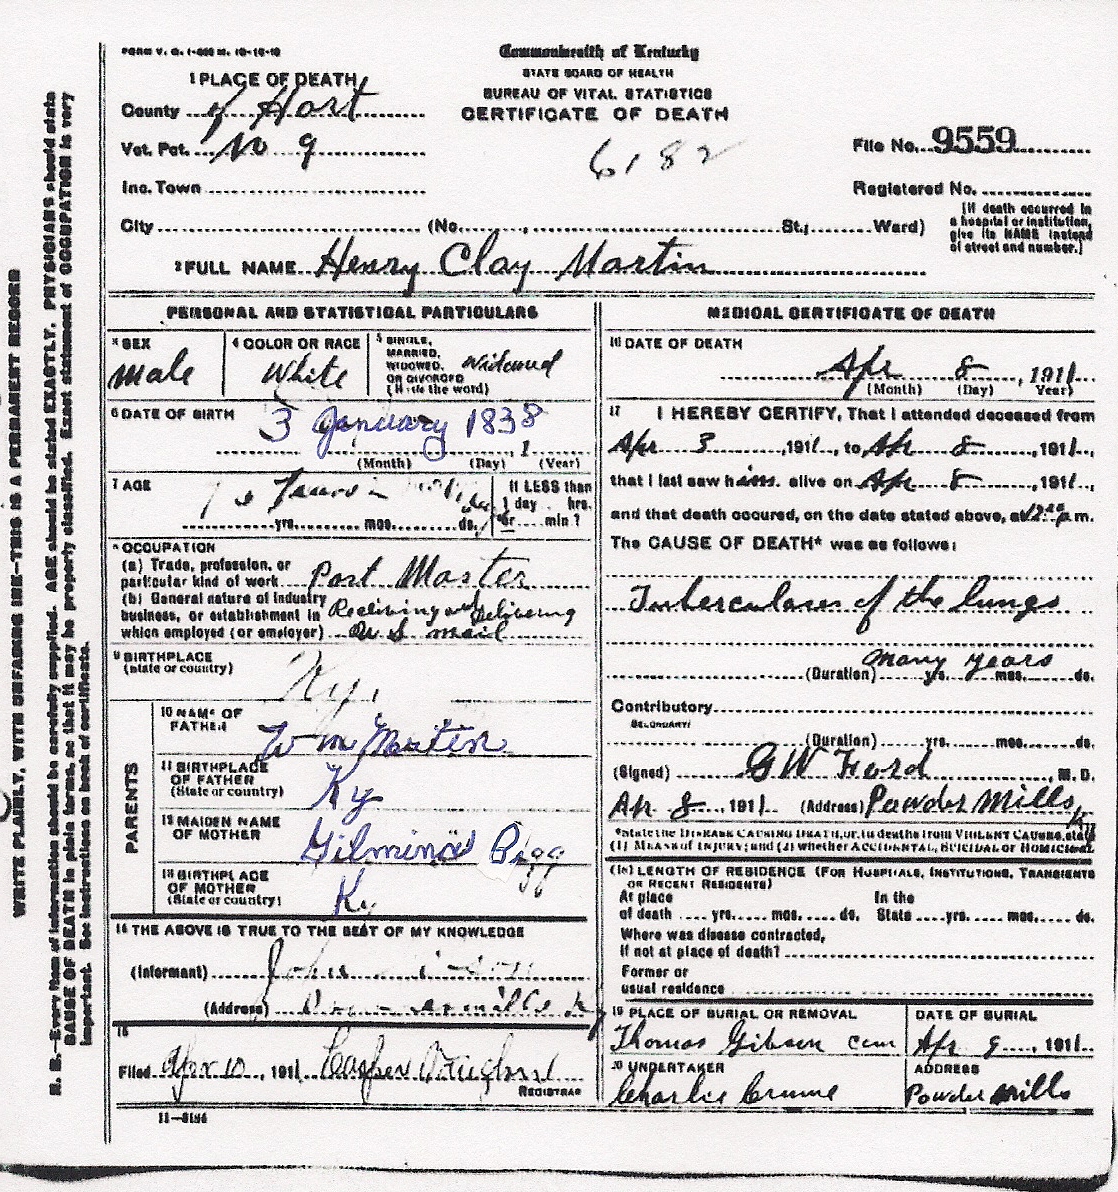 FORM V. S. 1-
Commonwealth of Kentucky
STATE BOARD OF HEALTH
BUREAU OF VITAL STATISTICS
CERTIFICATE OF DEATH
6182
1 PLACE OF DEATH
County of Hart
Vot. Pct. No 9
Inc. Town
City (No. , St.; Ward)
File No. 9559
Registered No.
[If death occurred in
a hospital or institution,
give its NAME instead
of street and number.]
2 FULL NAME Henry Clay Martin
PERSONAL AND STATISTICAL PARTICULARS
3 SEX
Male
4 COLOR OR RACE
White
5 SINGLE,
MARRIED,
WIDOWED,
OR DIVORCED
(Write the word)
Widowed
6 DATE OF BIRTH
3 January 1838
, 1
(Month) (Day) (Year)
7 AGE
yrs. mos. ds.
If LESS than
1 day hrs.
or min ?
8 OCCUPATION
(a) Trade, profession, or
particular kind of work Post Master
(b) General nature of industry
business, or establishment in Receiving and Delivering
which employed (or employer) U S mail
9 BIRTHPLACE
(State or country)
Ky.
PARENTS
10 NAME OF
FATHER
Wm Martin
11 BIRTHPLACE
OF FATHER
(State or country)
Ky
12 MAIDEN NAME
OF MOTHER
13 BIRTHPLACE
OF MOTHER
(State or country)
Ky
14 THE ABOVE IS TRUE TO THE BEST OF MY KNOWLEDGE
(Informant) John
(Address)
15
Filed Apr 10, 1911
REGISTRAR
11-5184
MEDICAL CERTIFICATE OF DEATH
16 DATE OF DEATH
Apr 8, 1911
(Month) (Day) Year)
17 I HEREBY CERTIFY, That I attended deceased from
Apr 3, 1911, to Apr 8, 1911,
that I last saw him alive on Apr 8, 1911,
and that death occured, on the date stated above, at m.
The CAUSE OF DEATH* was as follows:
Tuberculoses of the lungs
many years
(Duration) yrs. mos. ds.
Contributory
SECONDARY
(Duration) yrs. mos. ds.
(Signed) G W Ford, M. D.
Apr 8 1911 (Address) Powder Mills, Ky
*State the DISEASE CAUSING DEATH, or, in deaths from VIOLENT CAUSES, state
(1) MEANS OF INJURY; and (2) whether ACCIDENTAL, SUICIDAL or HOMICIDAL
(18) LENGTH OF RESIDENCE (FOR HOSPITALS, INSTITUTIONS, TRANSIENTS
OR RECENT RESIDENTS)
At place In the
of death yrs. mos. ds. State yrs. mos. ds.
Where was disease contracted,
if not at place of death?
Former or
usual residence
19 PLACE OF BURIAL OR REMOVAL
Thomas Gibson Cem
DATE OF BURIAL
Apr 9, 1911
20 UNDERTAKER
Charlie Crume
ADDRESS
Powder Mills
WRITE PLAINLY, WITH UNFADING INK—THIS IS A PERMANENT RECORD
N. B.—Every item of information should be carefully supplied. AGE should be stated EXACTLY. PHYSICIANS should state
CAUSE OF DEATH in plain terms, so that it may be properly classified. Exact statement of OCCUPATION is very
important. See instructions on back of certificate.